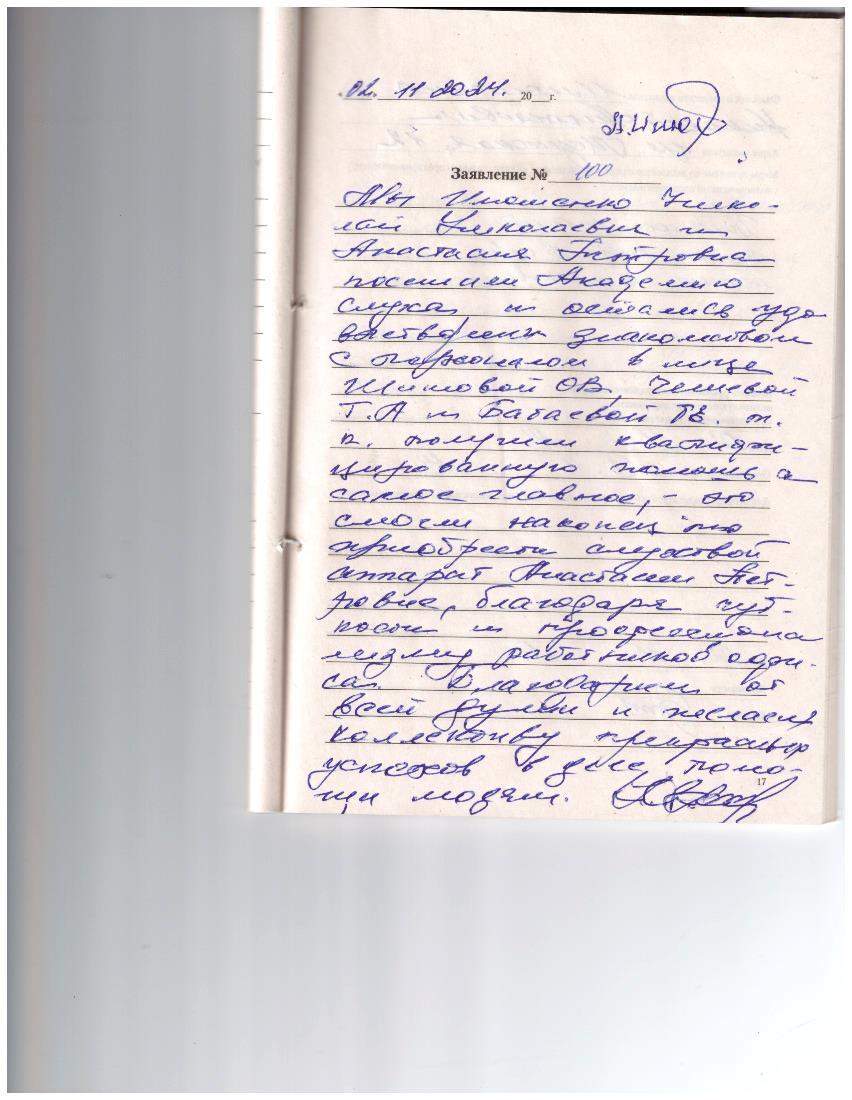 02. 11 2024. 20__г.
Заявление № 100
Мы Нико-
лай Николаевич и
Анастасия Петровна
посетили Академию
слуха, и остались удо
влетворены знакомством
с персоналом в лице
Шиловой О.В,
Т.А и Бабаевой Т.В. т.
к. получили квалифи-
цированную помощь а
самое главное, - это
смогли наконец то
приобрести слуховой
аппарат Анастасии Пет-
ровне, благодаря чут-
кости и профессиона
лизму работников офи-
са. Благодарим от
всей души и желаем
коллективу прекрасных
успехов в деле помо-
щи людям.
17